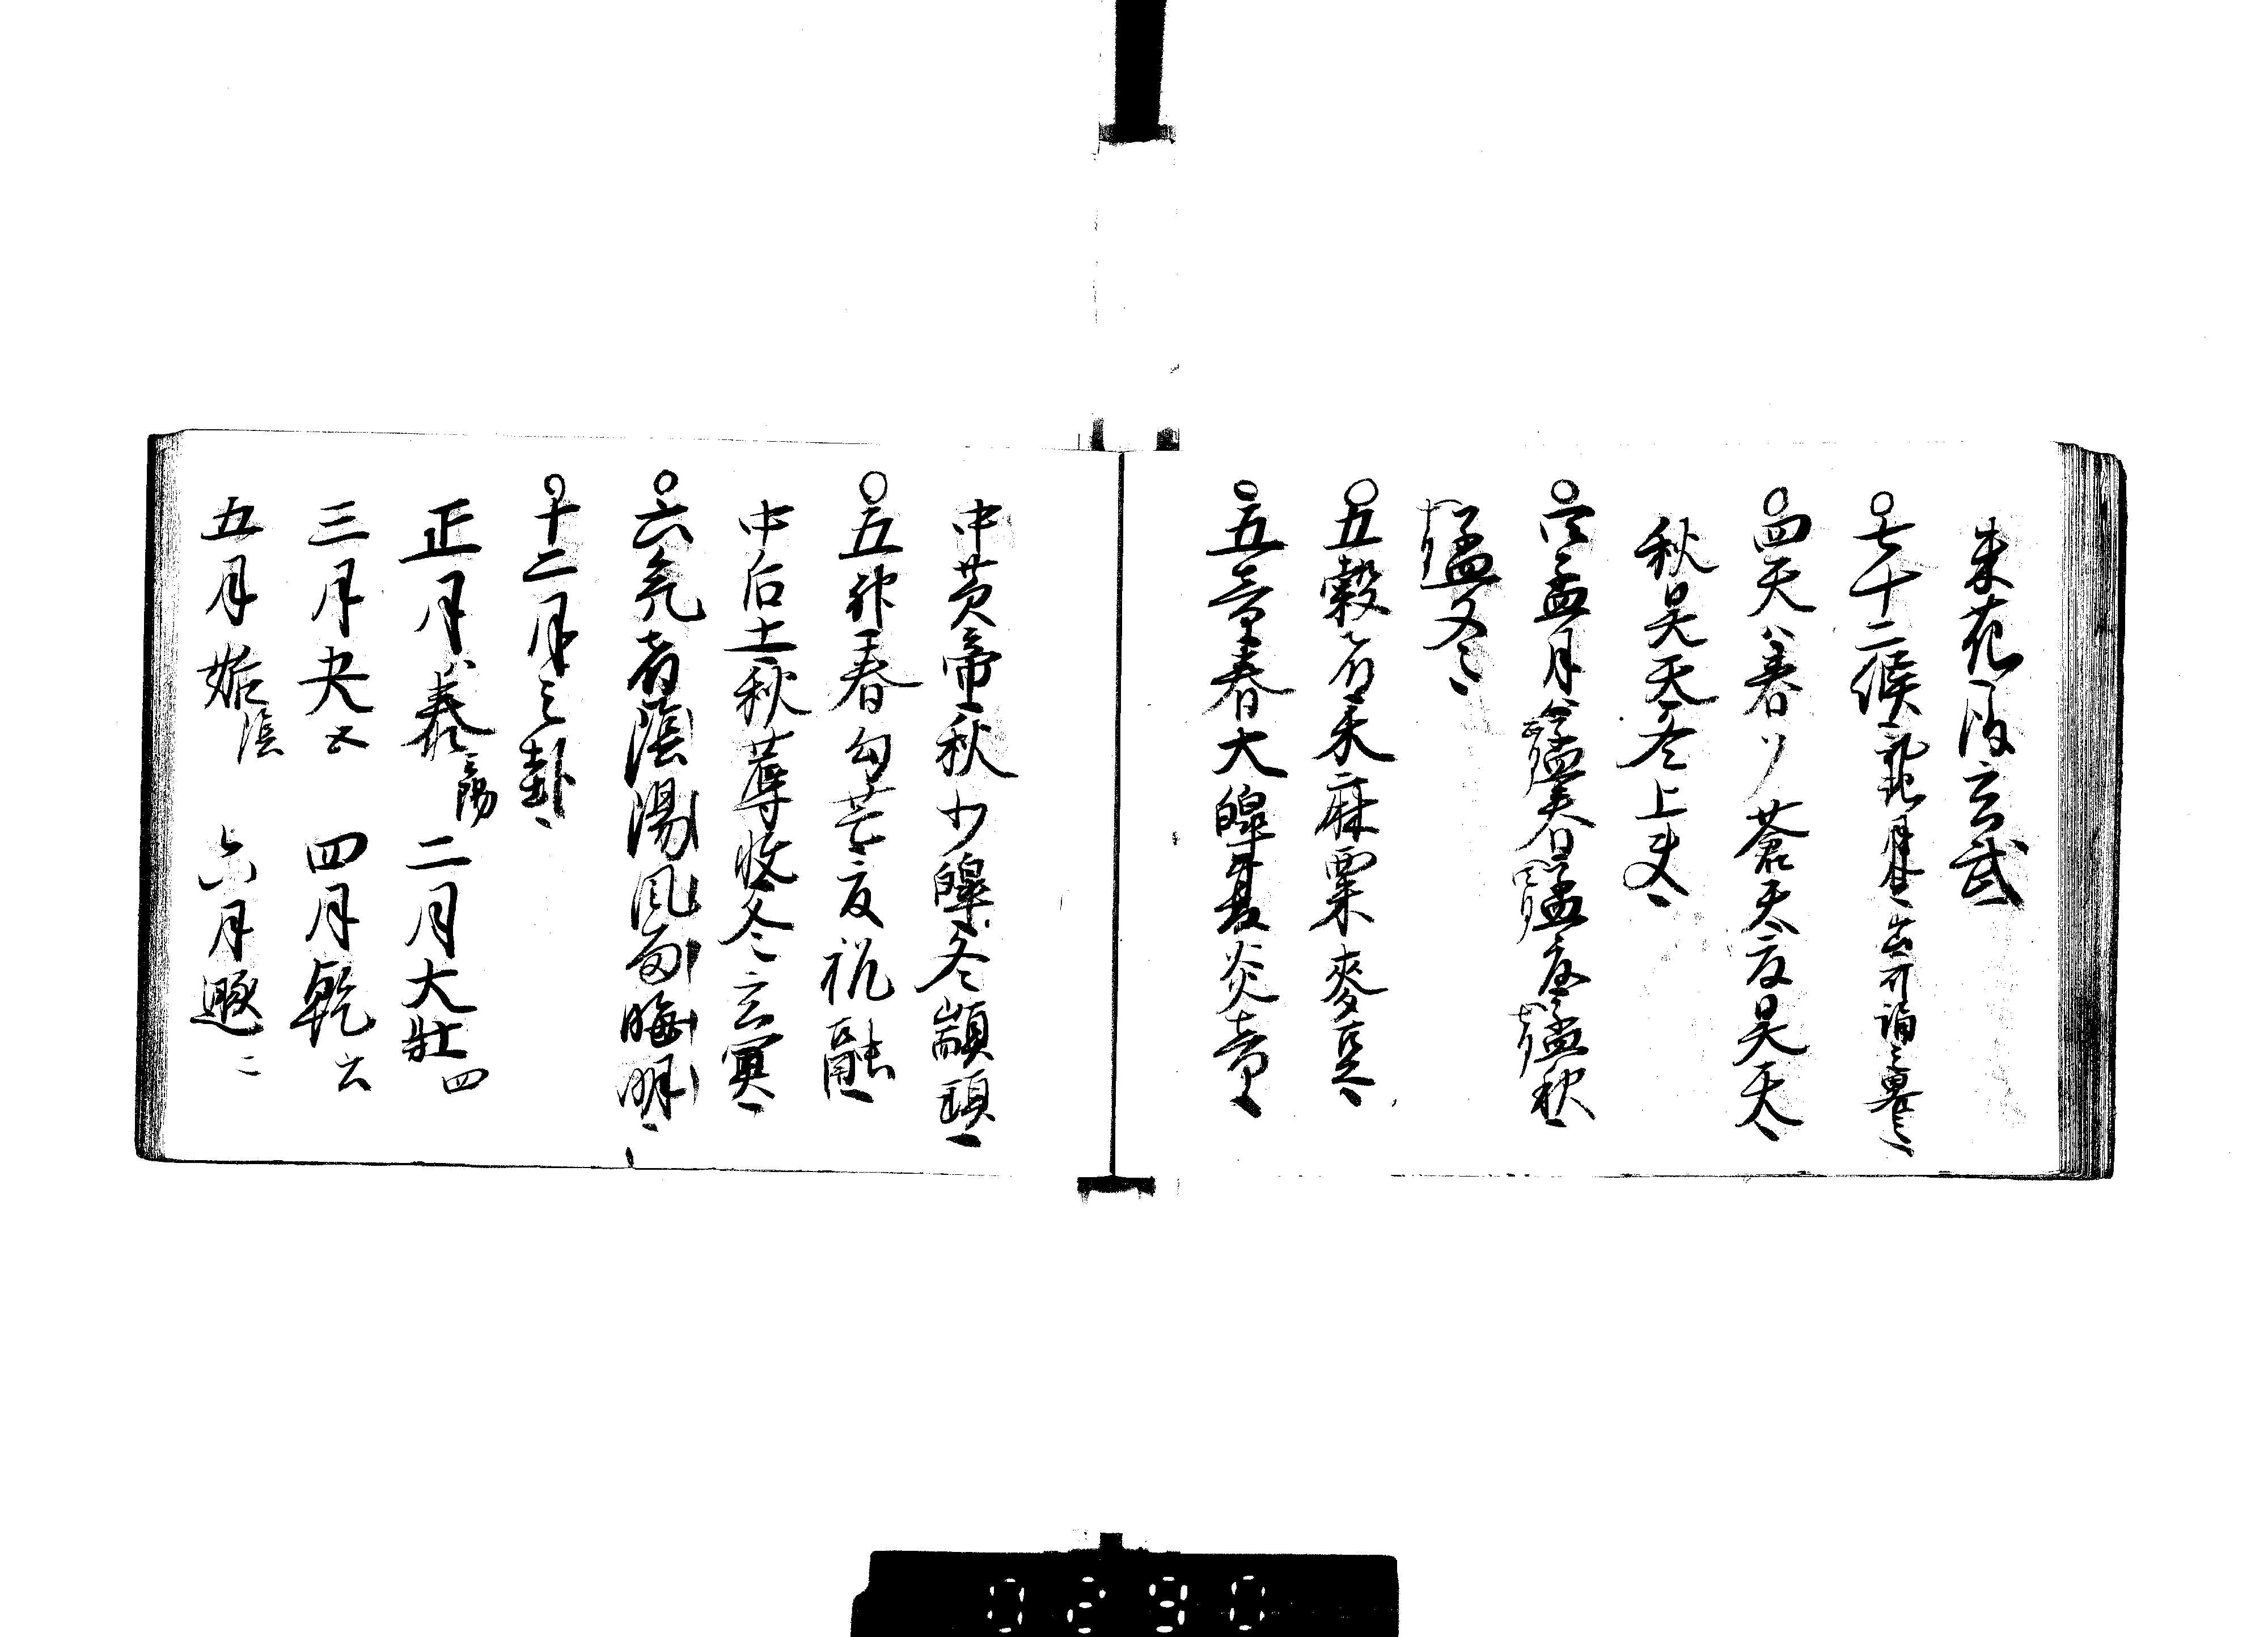 朱花一後玄武
○七十二候
○四天ハ春ハ蒼天夏昊天
秋旻天冬上天
○四孟月ハ孟春孟夏孟秋
孟冬
○五穀者禾麻粟麥豆
○五帝春大皥夏炎帝
中黄帝秋少皥冬顓頊
○五神春勾芒夏祝融
中后土秋蓐收冬玄冥
○六氣者陰陽風雨晦明
○十二月之卦
正月泰三陽 二月大壯四
三月夬五 四月乾六
五月姤陰 六月遯二
0290